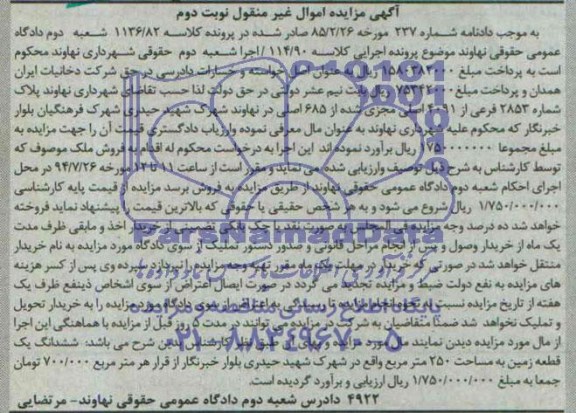 آگهی مزایده اموال غیر منقول نوبت دوم
به موجب دادنامه شماره ۲۳۷ مورخه ۸۵/۲/۲۶ صادر شده در پرونده کلاسه ۱۱۳۶/۸۲ شعبه دوم دادگاه
عمومی حقوقی نهاوند موضوع پرونده اجرایی کلاسه ۱۱۴/۹۰ /اجرا شعبه دوم حقوقی شهرداری نهاوند محکوم
است به پرداخت مبلغ ریال به عنوان اصل خواسته و خسارات دادرسی در حق شرکت دخانیات ایران
همدان و پرداخت مبلغ ریال بابت نیم عشر دولتی در حق دولت لذا حسب تقاضای شهرداری نهاوند پلاک
شماره ۲۸۵۳ فرعی از ۴۰۹۱ اصلی مجزی شده از ۶۸۵ اصلی در نهاوند شهرک شهید حیدری شهرک فرهنگیان بلوار
خبرنگار که محکوم علیه شهرداری نهاوند به عنوان مال معرفی نموده و ارزیاب دادگستری قیمت آن را جهت مزایده به
مبلغ مجموعا ۱۷۵۰۰۰۰۰۰۰ ریال برآورد نموده اند این اجرا به درخواست محکوم له اقدام به فروش ملک موصوف که
توسط کارشناس به شرح ذیل توصیف و ارزیابی شده می نماید و مقرر است از ساعت ۱۱ تا ۱۲ مورخه ۹۴/۷/۲۶ در محل
اجرای احکام شعبه دوم دادگاه عمومی حقوقی نهاوند از طریق مزایده به فروش برسد مزایده از قیمت پایه کارشناسی
۱/۷۵۰/۰۰۰/۰۰۰ ریال شروع می شود و به هر شخص حقیقی یا حقوقی که بالاترین قیمت را پیشنهاد نماید فروخته
خواهد شد ده درصد وجه مزایده فی المجلس به صورت نقد یا چک بانکی تضمینی از خریدار اخذ و مابقی ظرف مدت
یک ماه از خریدار وصول و پس از انجام مراحل قانونی و صدور دستور تملیک از سوی دادگاه مورد مزایده به نام خریدار
منتقل خواهد شد در صورتی که خریدار در مهلت یک ماه مقرر بهای وجه مزایده را نپردازد سپرده وی پس از کسر هزینه
های مزایده به نفع دولت ضبط و مزایده تجدید می گردد در صورت ایصال اعتراض از سوی اشخاص ذینفع ظرف یک
هفته از تاریخ مزایده نسبت به نحوه انجام مزایده تا رسیدگی به اعتراض از سوی دادگاه مورد مزایده را به خریدار تحویل
و تملیک نخواهد شد ضمنا متقاضیان به شرکت در مزایده می توانند در مدت ۵ روز قبل از مزایده با هماهنگی این اجرا
از مال مورد مزایده دیدن نمایند مال مورد مزایده طبق نظر کارشناس بدین شرح می باشد: ششدانگ یک
قطعه زمین به مساحت ۲۵۰ متر مربع واقع در شهرک شهید حیدری بلوار خبرنگار از قرار هر متر مربع ۷۰۰/۰۰۰ تومان
جمعا به مبلغ ۱/۷۵۰/۰۰۰/۰۰۰ ریال ارزیابی و برآورد گردیده است.
۴۹۲۲ دادرس شعبه دوم دادگاه عمومی حقوقی نهاوند- مرتضایی
ParsNamadData
پایگاه اطلاع رسانی مناقصه و مزایده
۰۲۱-۸۸۳۴۹۶۷۰-۵